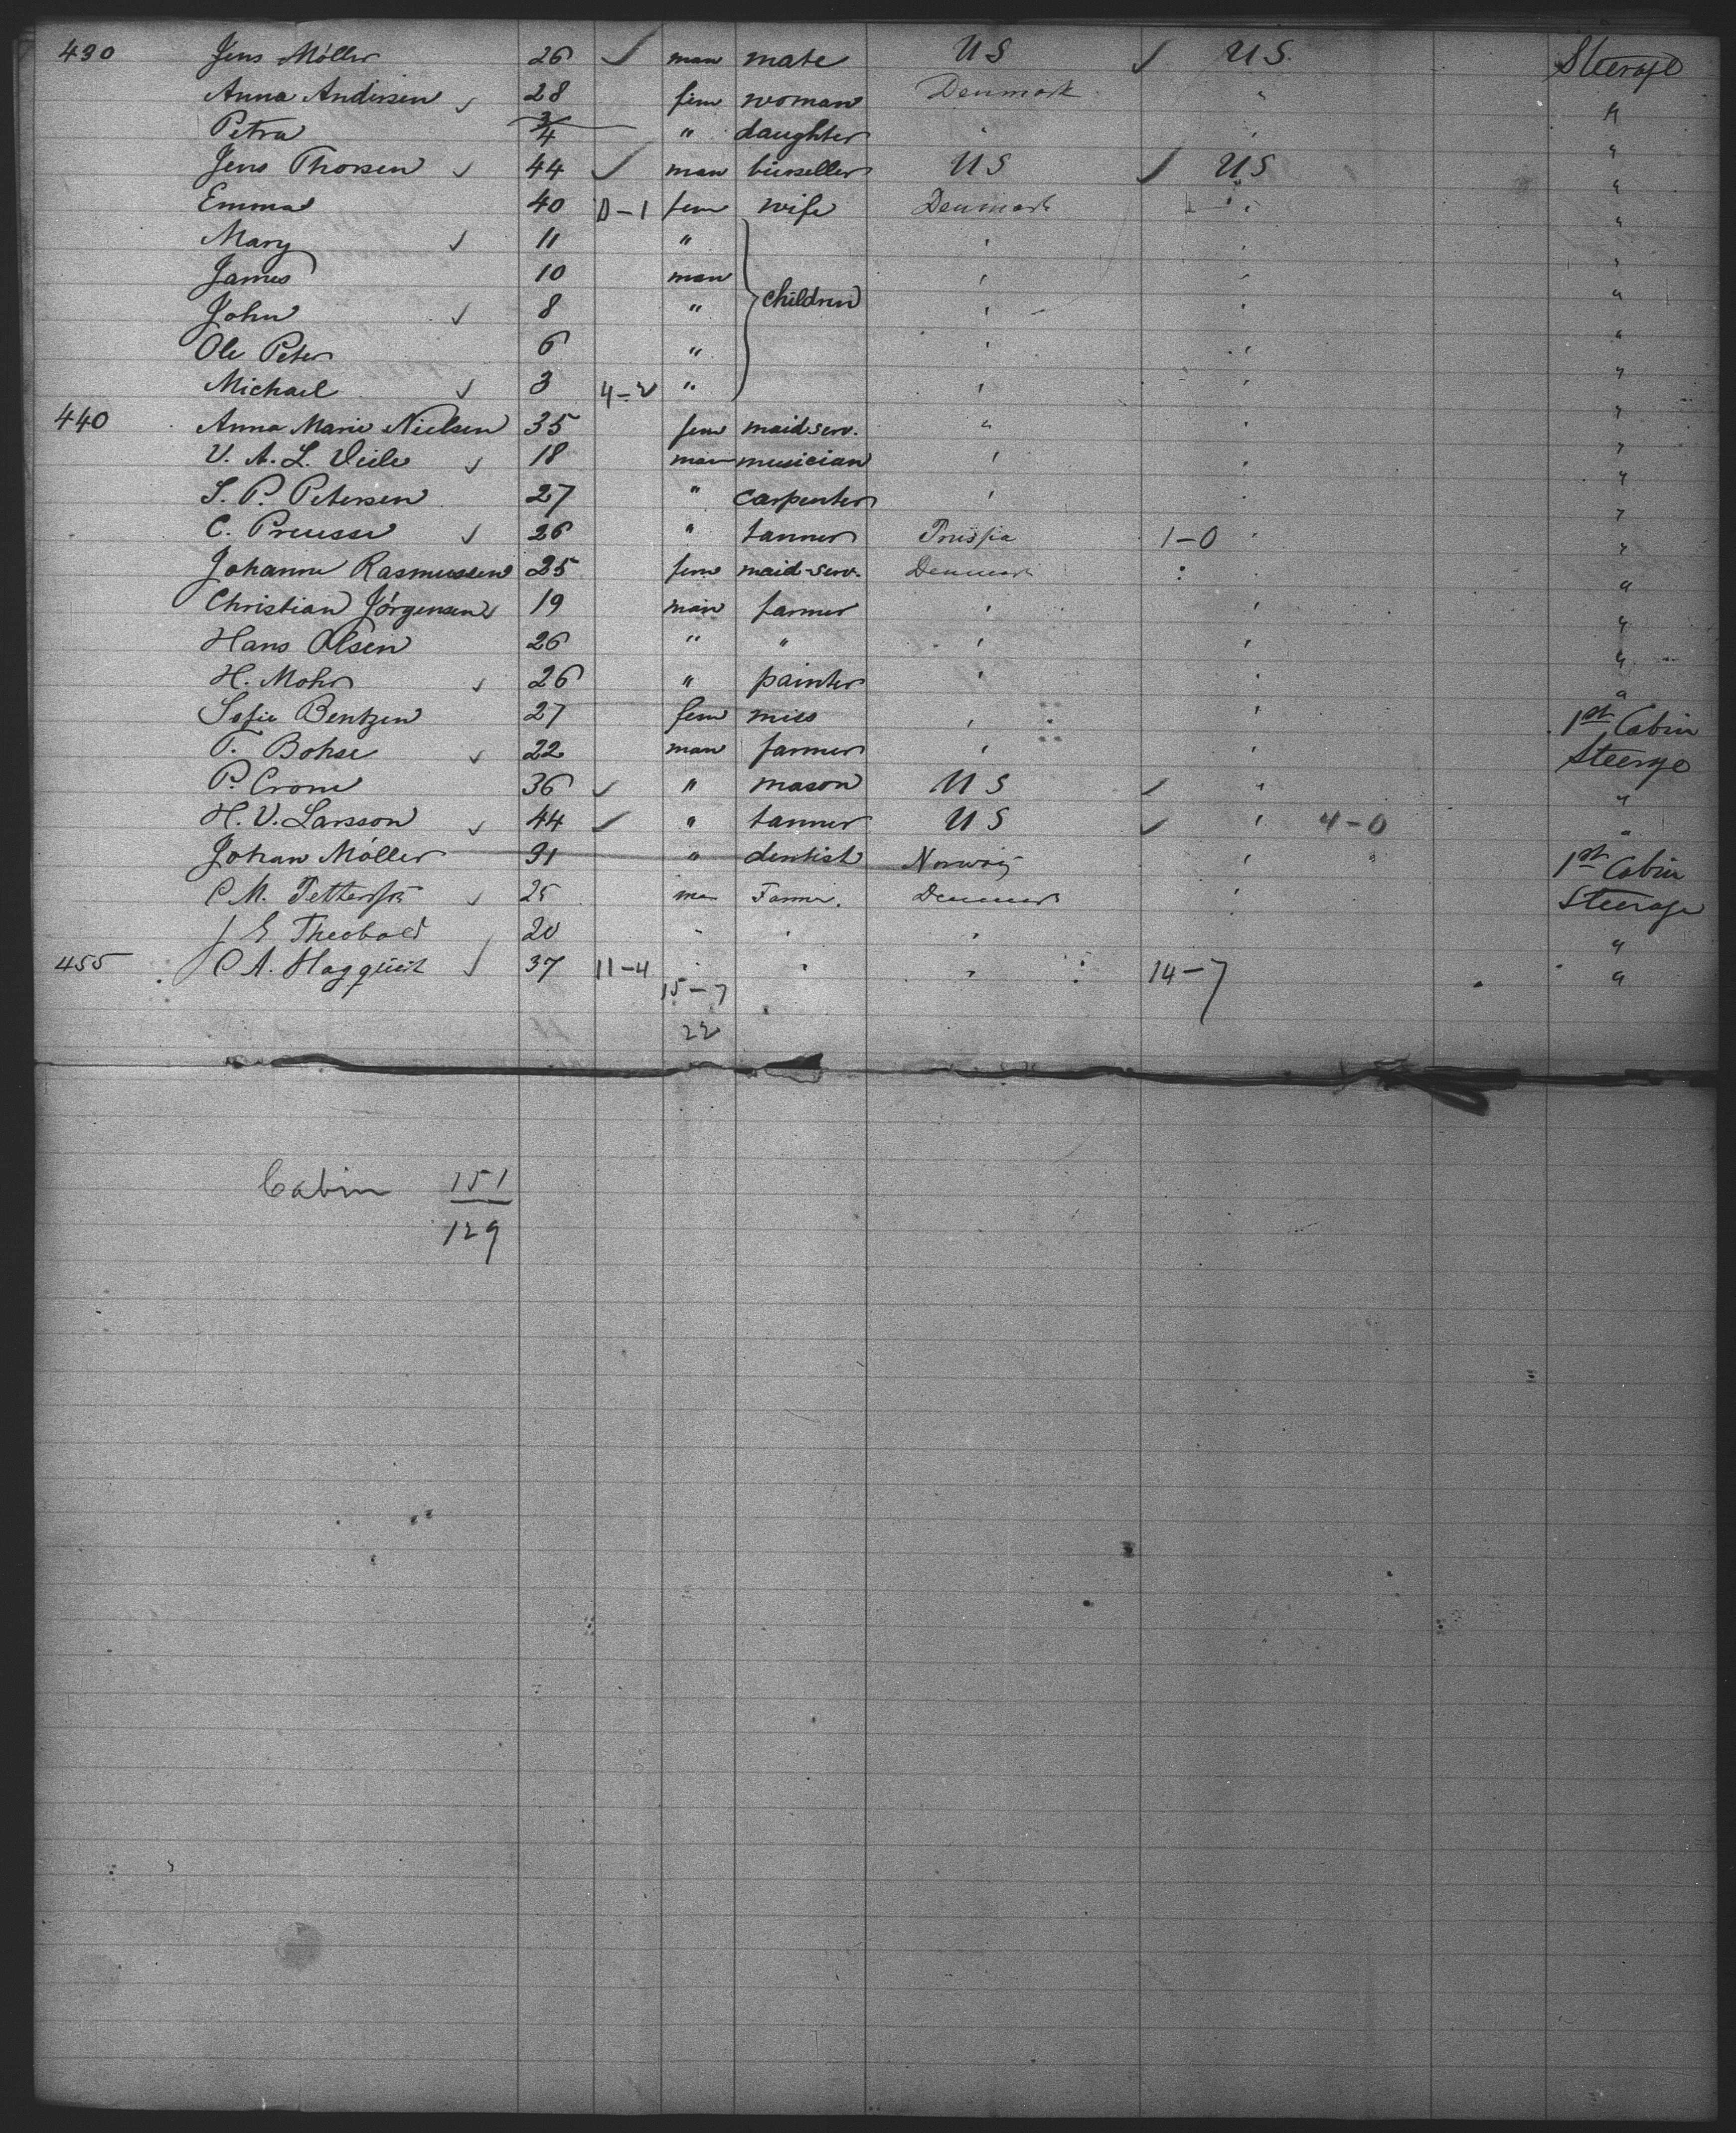 430 Jens Möller 26 ✓ man mate US ✓ US. Steerage
Anna Andersen ✓ 28 fem woman Denmark " "
Petra 3/4 " daughter " " "
Jens Thorsen ✓ 44 ✓ man US ✓ US "
Emma 40 0-1 fem wife Denmark " "
Mary ✓ 11 " " " "
James 10 man " " "
John ✓ 8 " children " " "
Ole Peter 6 " " " "
Michael ✓ 3 4-2 " " " "
440 Anna Marie Nielsen 35 fem maid serv. " " "
V. A. L. ✓ 18 man musician " " "
S. P. Petersen 27 " carpenter " " "
C. Preusse ✓ 26 " tanner Prussia 1-0 " "
Johanne Rasmussen 25 fem maid-serv. Denmark " "
Christian Jörgensen ✓ 19 man farmer " " "
Hans Olsen 26 " " " " "
H. Mohr ✓ 26 " painter " " "
Sofie Bentzen 27 fem miss " " 1st Cabin
T. Bohse ✓ 22 man farmer " " Steerge
P. Crone 36 ✓ " mason US ✓ " "
H. V. Larsson ✓ 44 ✓ " tanner US ✓ " 4-0 "
Johan Möller 31 " dentist Norway " " 1st Cabin
C. M. ✓ 25 man Farmer. Denmark " Steerage
J E Theobald 20 " " " "
455 C A. Hagquist ✓ 37 11-4 " " " 14-7 "
15-7
22
Cabin 151
129